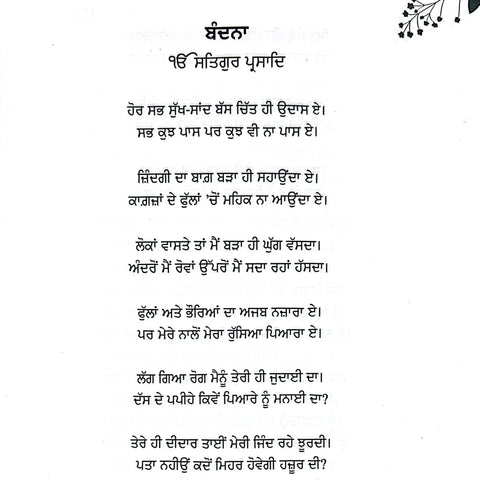 ਬੰਦਨਾ
ੴ ਸਤਿਗੁਰ ਪ੍ਰਸਾਦਿ
ਹੋਰ ਸਭ ਸੁੱਖ-ਸਾਂਦ ਬੱਸ ਚਿੱਤ ਹੀ ਉਦਾਸ ਏ।
ਸਭ ਕੁਝ ਪਾਸ ਪਰ ਕੁਝ ਵੀ ਨਾ ਪਾਸ ਏ।
ਜ਼ਿੰਦਗੀ ਦਾ ਬਾਗ਼ ਬੜਾ ਹੀ ਸਹਾਉਂਦਾ ਏ।
ਕਾਗ਼ਜ਼ਾਂ ਦੇ ਫੁੱਲਾਂ ’ਚੋਂ ਮਹਿਕ ਨਾ ਆਉਂਦਾ ਏ।
ਲੋਕਾਂ ਵਾਸਤੇ ਤਾਂ ਮੈਂ ਬੜਾ ਹੀ ਘੁੱਗ ਵੱਸਦਾ।
ਅੰਦਰੋਂ ਮੈਂ ਰੋਵਾਂ ਉੱਪਰੋਂ ਮੈਂ ਸਦਾ ਰਹਾਂ ਹੱਸਦਾ।
ਫੁੱਲਾਂ ਅਤੇ ਭੌਰਿਆਂ ਦਾ ਅਜਬ ਨਜ਼ਾਰਾ ਏ।
ਪਰ ਮੇਰੇ ਨਾਲੋਂ ਮੇਰਾ ਰੁੱਸਿਆ ਪਿਆਰਾ ਏ।
ਲੱਗ ਗਿਆ ਰੋਗ ਮੈਨੂੰ ਤੇਰੀ ਹੀ ਜੁਦਾਈ ਦਾ।
ਦੱਸ ਦੇ ਪਪੀਹੇ ਕਿਵੇਂ ਪਿਆਰੇ ਨੂੰ ਮਨਾਈ ਦਾ?
ਤੇਰੇ ਹੀ ਦੀਦਾਰ ਤਾਈਂ ਮੇਰੀ ਜਿੰਦ ਰਹੇ ਝੂਰਦੀ।
ਪਤਾ ਨਹੀਉਂ ਕਦੋਂ ਮਿਹਰ ਹੋਵੇਗੀ ਹਜ਼ੂਰ ਦੀ?